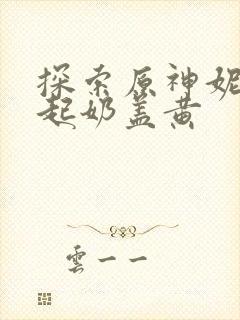 探索原神妮
起奶盖黄
雲一一